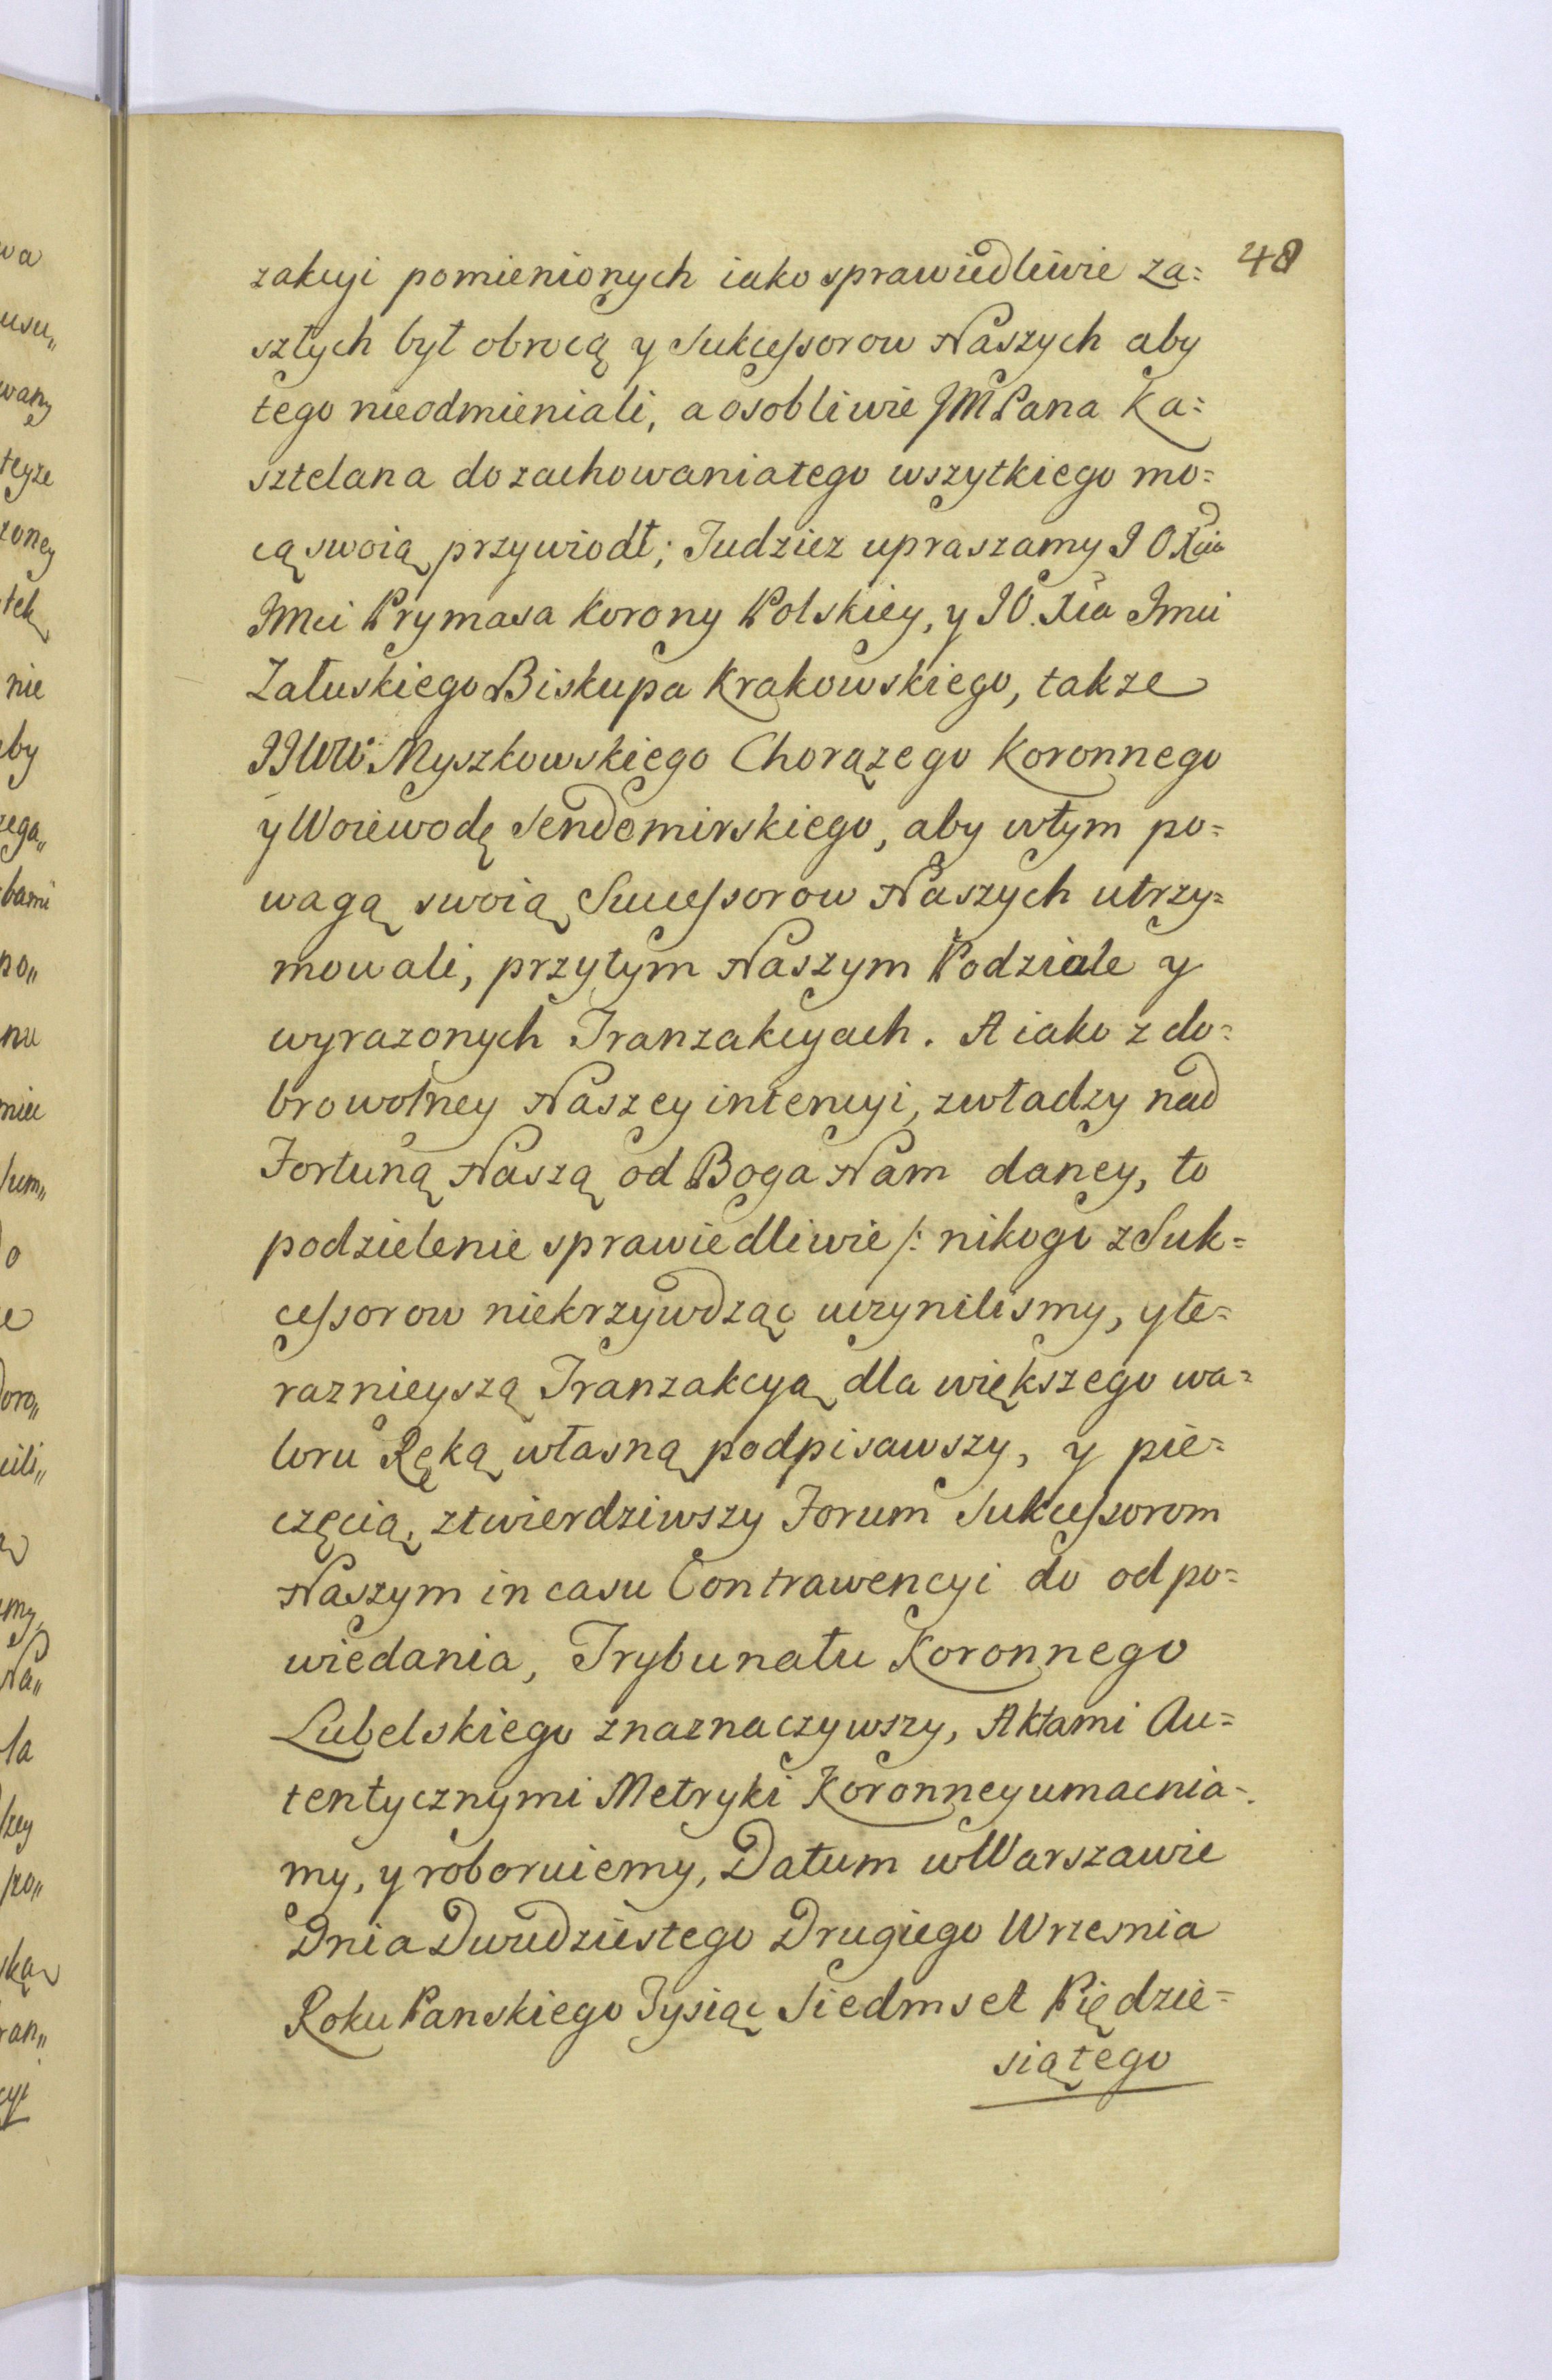 48
zakcyi pomienionych iako sprawiedliwie za=
szłych był obrocą y Sukcessorow Naszych aby
tego nieodmieniali, a osobliwie JMPana Ka=
sztelana do zachowania tego wszytkiego mo=
cą swoią przywiodł; Tudziez upraszamy JO Xcia
JMci Prymasa Korony Polskiey, y JO. Xcia Jmci
Załuskiego Biskupa Krakowskiego, takze
JJWW Myszkowskiego Chorązego Koronnego
y Woiewodę Sendomirskiego, aby w tym po=
wagą swoią Successorow Naszych utrzy=
mowali, przytym Naszym Podziale y
wyrazonych Tranzakcyach. A iako z do=
browolney Naszey intencyi, zwładzy nad
Fortuną Naszą od Boga Nam daney, to
podzielenie sprawiedliwie /: nikogo z Suk=
cessorow niekrzywdząc uczynilismy, y te=
raznieyszą Tranzakcyą dla większego wa=
loru Ręką własną podpisawszy, y pie=
częcią, ztwierdziwszy Forum Sukcessorom
Naszym in casu Contrawencyi do odpo=
wiedania, Trybunału Koronnego
Lubelskiego znaznaczywszy, Aktami Au=
tentycznymi Metryki Koronney umacnia=
my, y roboruiemy, Datum w Warszawie
Dnia Dwudziestego Drugiego Wrzesnia
Roku Panskiego Tysiąc Siedmset Piędzie=
siątego